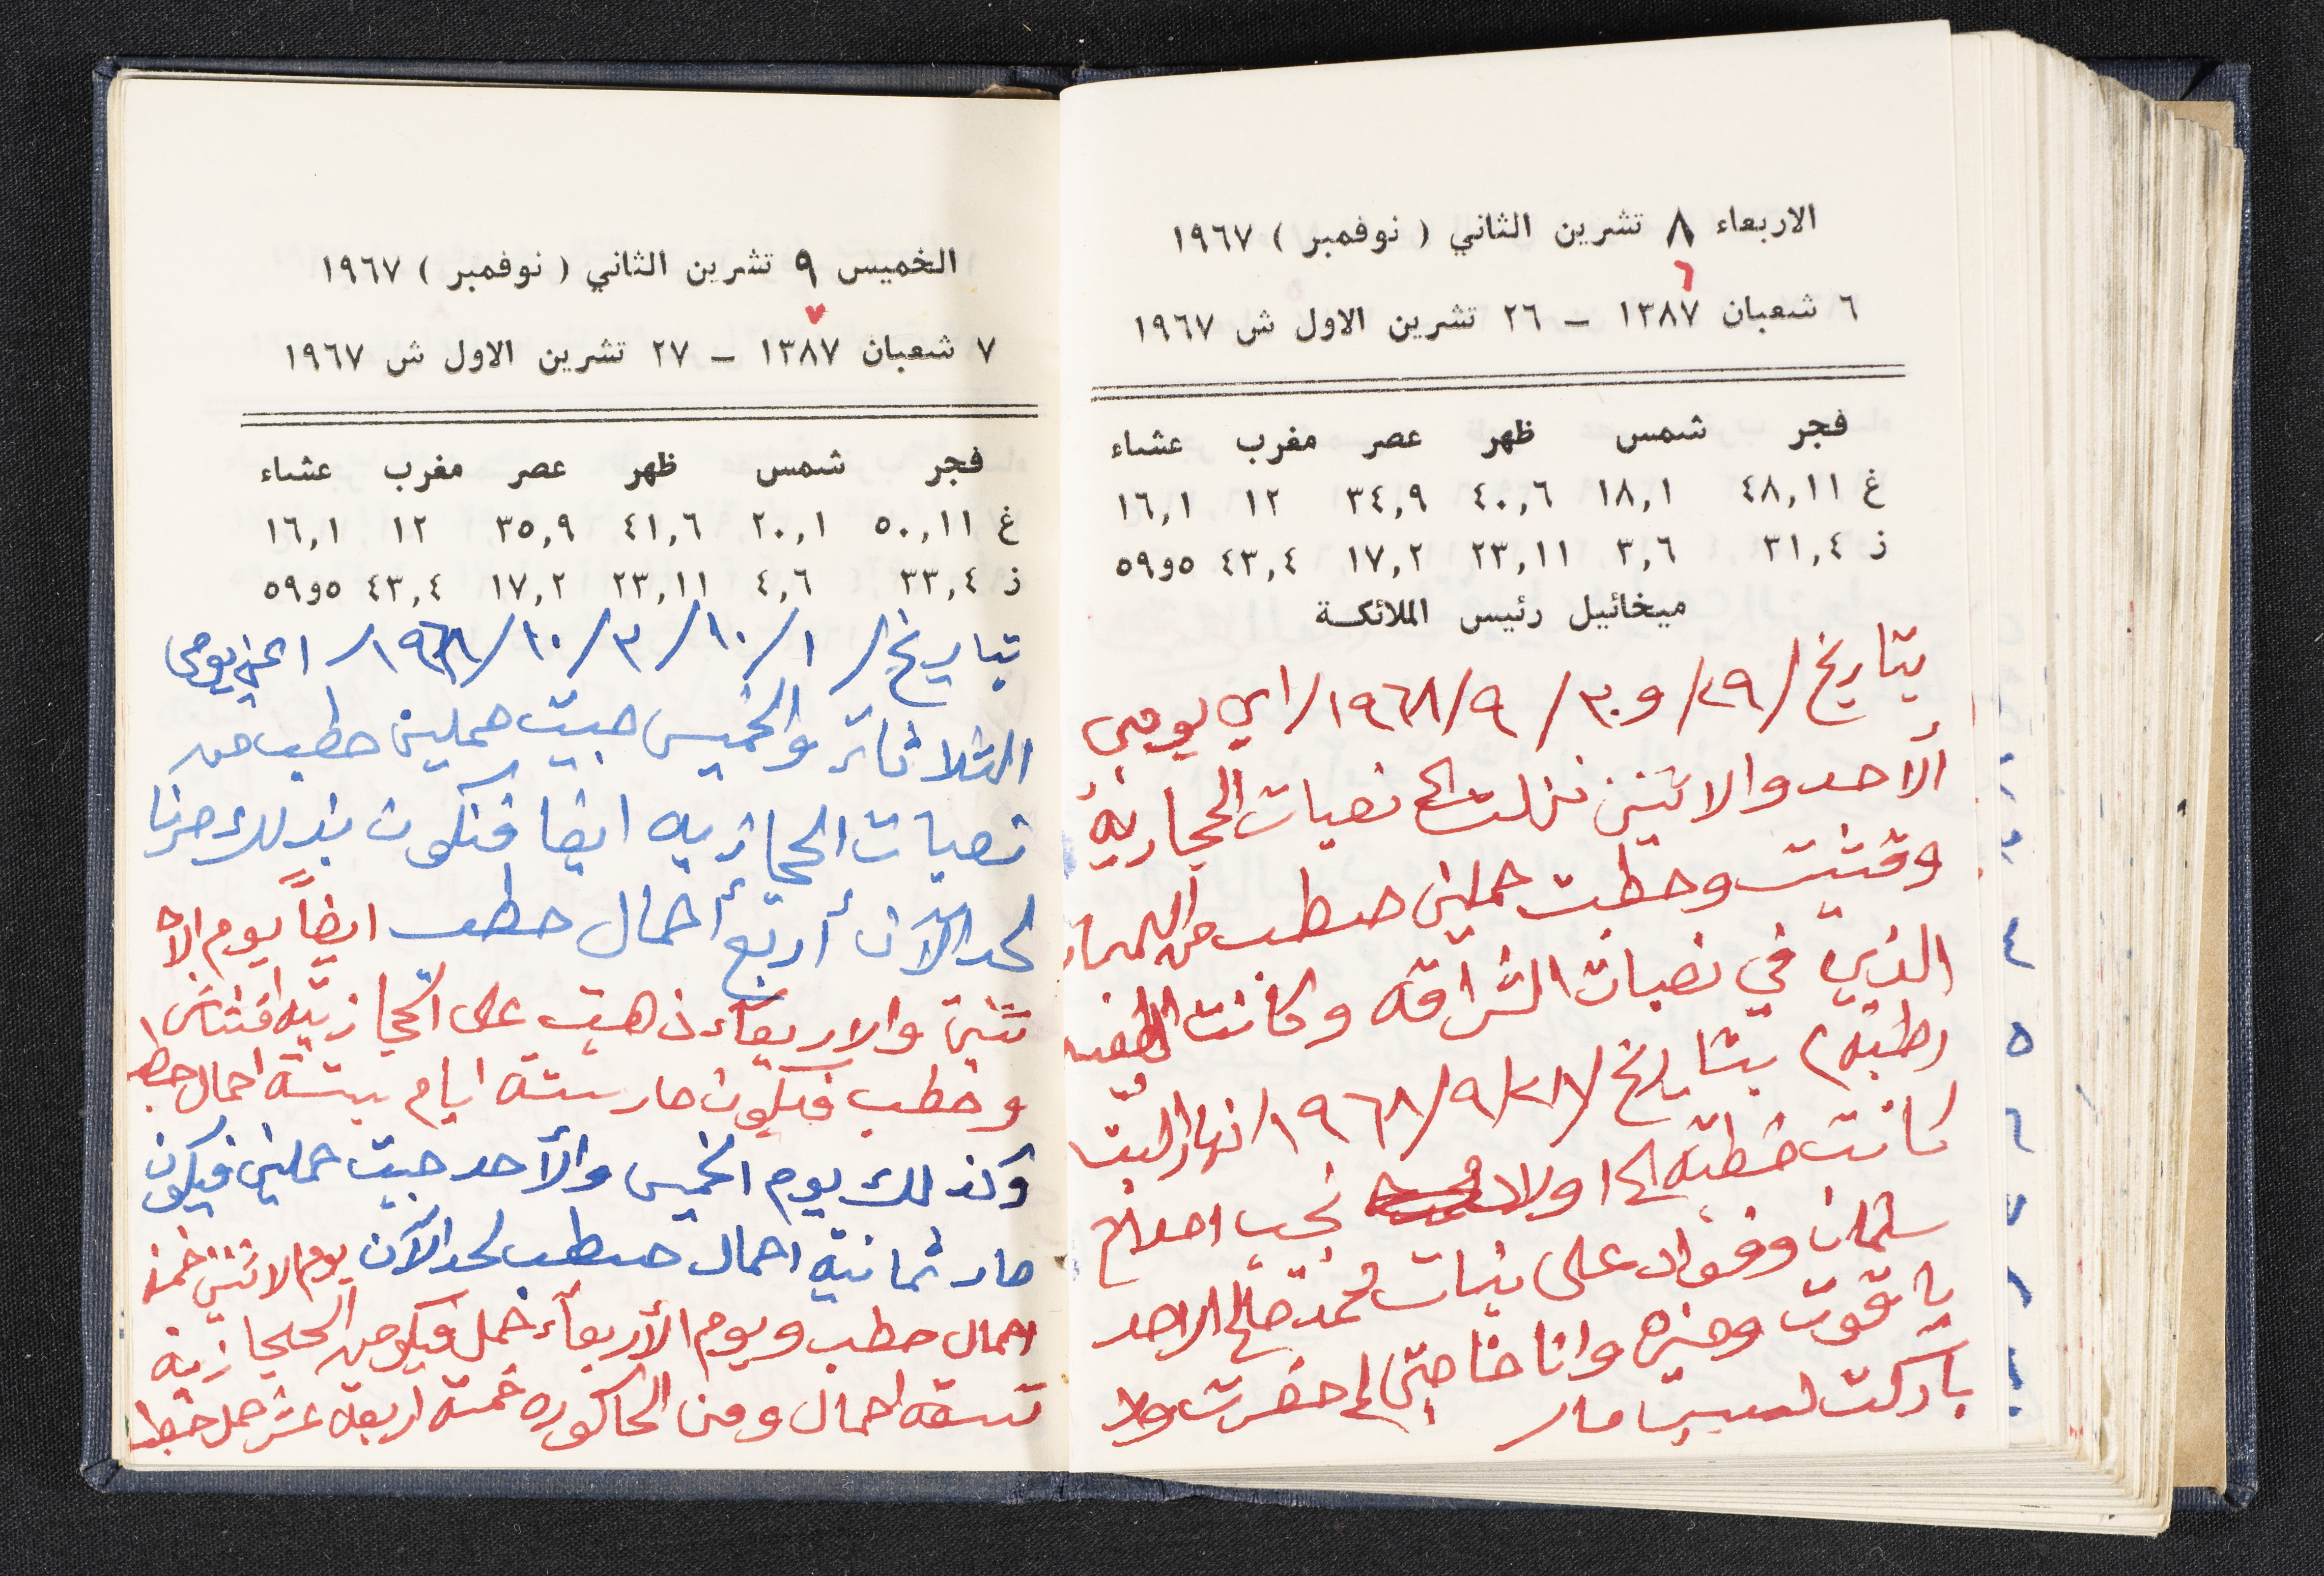 الاربعاء ٨ تشرين الثاني ( نوفمبر ) ١٩٦٧
٦
٦ شعبان ١٣٨٧ – ٢٦ تشرين الاول ش ١٩٦٧
فجر شمس ظهر عصر مغرب عشاء
غ ٤٨,١١ ١٨,١ ٤٠,٦ ٣٤,٩ ١٢ ١٦,١
ز ٣١,٤ ٣,٦ ٢٣,١١ ١٧,٢ ٤٣,٤ ٥و٥٩
ميخائيل رئيس الملائكة
بتاريخ /٢٩/ و٣٠ / ٩/ ١٩٦٨/ اي يومي
ألاحد والاثنين نزلت الى نصبات الحجازية
وقشيت وحطبت حملين حطب من
الذي في نصبات الشراقه وكانت
رطبه، بتاريخ /٢٨/ ٩/ ١٩٦٨/ نهار السبت
كانت خطبة اولاد نجيب
سلمان وفؤاد على بنات محمد صالح
ياقوت وانا لم حضرت ولا
باركت
الخميس ٩ تشرين الثاني ( نوفمبر ) ١٩٦٧
٧
٧ شعبان ١٣٨٧ – ٢٧ تشرين الاول ش ١٩٦٧
فجر شمس ظهر عصر مغرب عشاء
غ ٥٠,١١ ٢٠,١ ٤١,٦ ٣٥,٩ ١٢ ١٦,١
ز ٣٣,٤ ٤,٦ ٢٣,١١ ١٧,٢ ٤٣,٤ ٥و٥٩
بتاريخ/ ١/ ١٠/ ٣/ ١٠/ ١٩٦٨/ اعني يومي
الثلاثاء والخميس جبت حملين حطب من
نصبات الحجازيه ايضا فنكون بذلك صرنا
لحد الآن أربع أحمال حطب ايضاً يوم الا
ثنين والاربعاء ذهبت على الحجازية
وحطب فيكون صار ستة ايام بستة احمال حطب
وكذلك يوم الخميس والأحد جبت حملين فيكون
صار ثمانية احمال حطب لحد الآن يوم الاثنين
احمال حطب ويوم الأربعاء حمل فيكو من الحجازية
تسعة احمال ومن الحاكوره خمسة اربعة عشر حمل حطب
٤
٥
٦
٧
٨